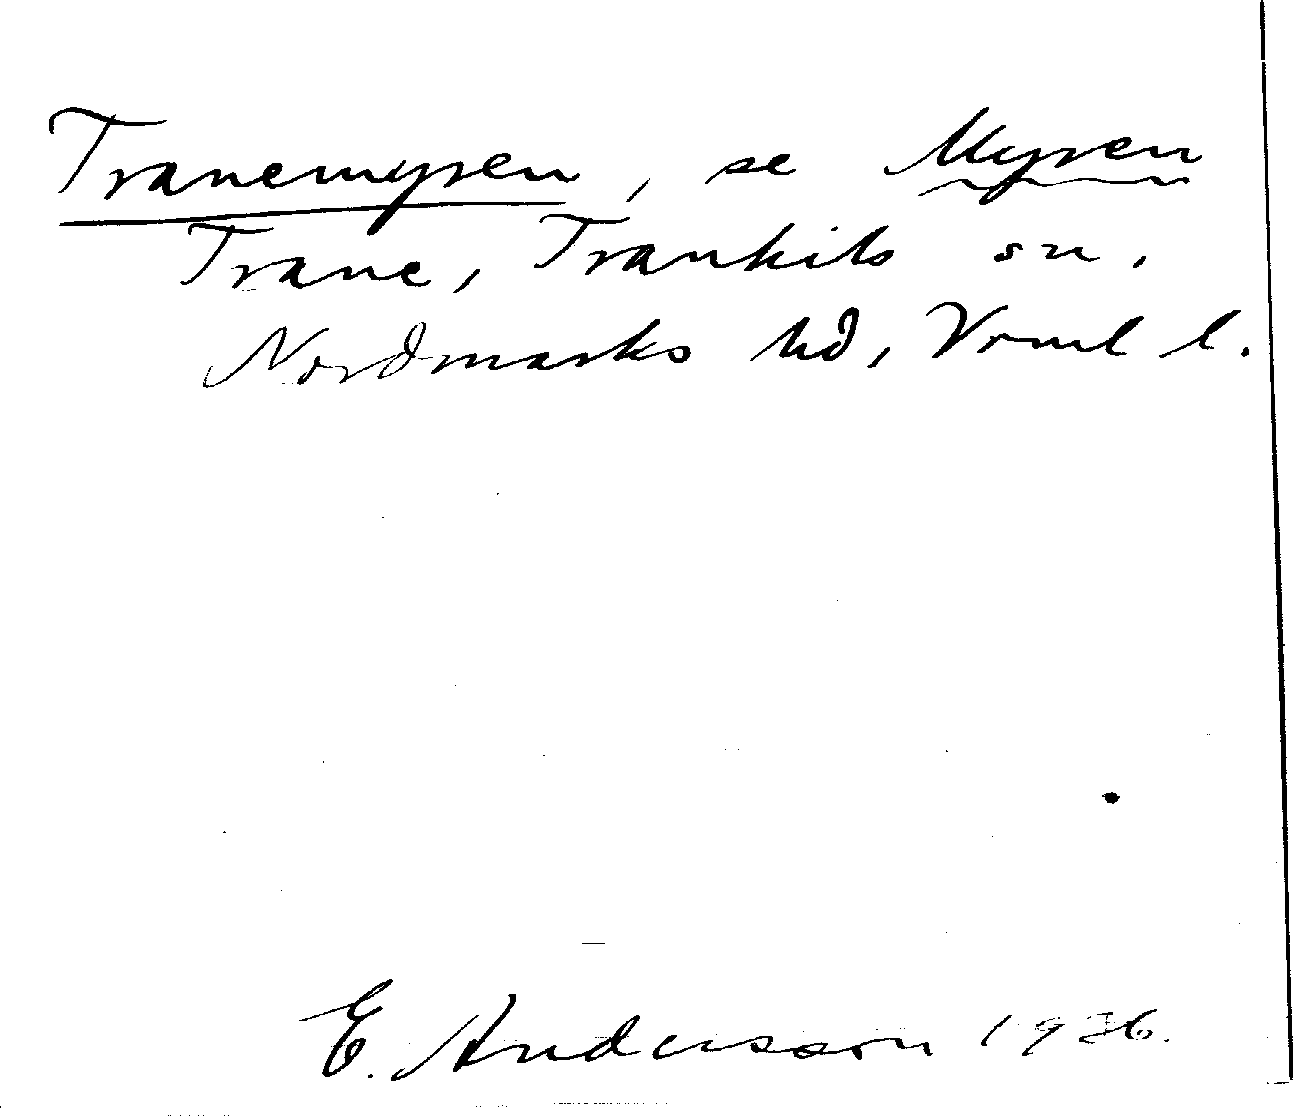 Tranemyren, se Myren
Trane, Trankils sn,
Nordmarks hd, Vrml l.
E. Andersson 1936.